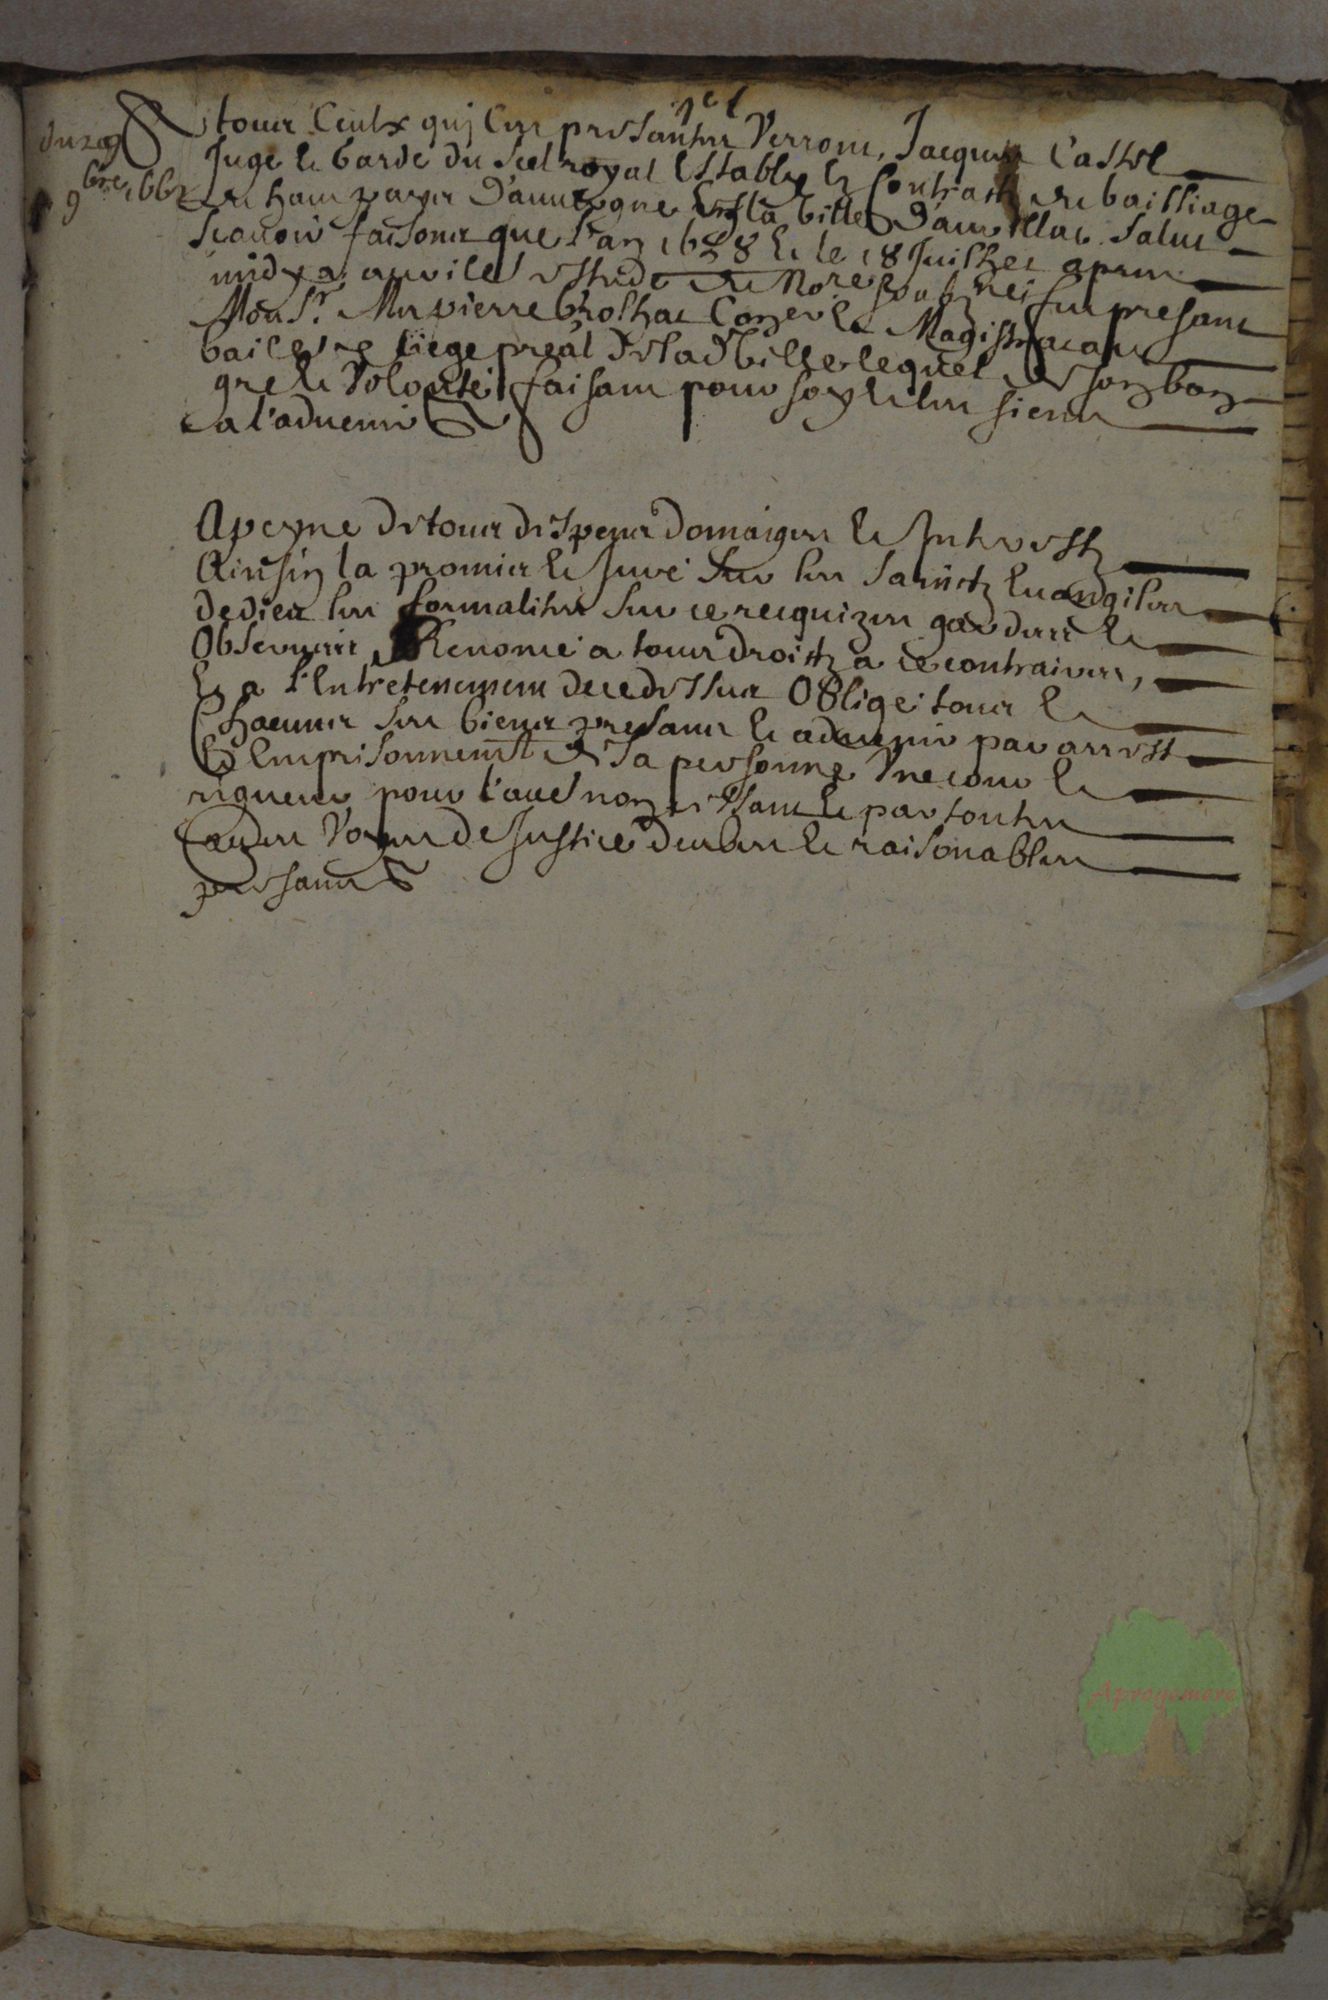 du 29
9bre 166
A tous Ceulx quj Ces presantes Verront, Jacques Castel
Juge et Garde du scel royal Estably Es Contratz du bailliage
du hault payx d'auvergne En la ville d'aurillac salut
scavoir faisons que l'an 16 8 et le 18 Juilhet apres
midy a aurilet estude de Nore soubzne fut presant
Monsr Me pierre broshac Conser et Magistrat au
bailge siege preal de lad ville lequel de son bon
gre et Volonte faisant pour soy et les siens
a l'advenir
A peyne de tous despens domaiges et Interestz
Ainsin la promis et Jure sur les sainctz Euangiles
de dieu les formalites sur ce recquizes gardees et
Observees Renonce a tous droictz a ce contraires,
Et a l'Entretenement de ce dessus Oblige tous et
Chacuns ses biens presans et advenir par arrest
Et Emprisonnemt de sa personne Une cour et
rigueur pour l'aue non cessant et par toutes
audes Voyes de Justice deubes et raisonables
presans
Aprogemere